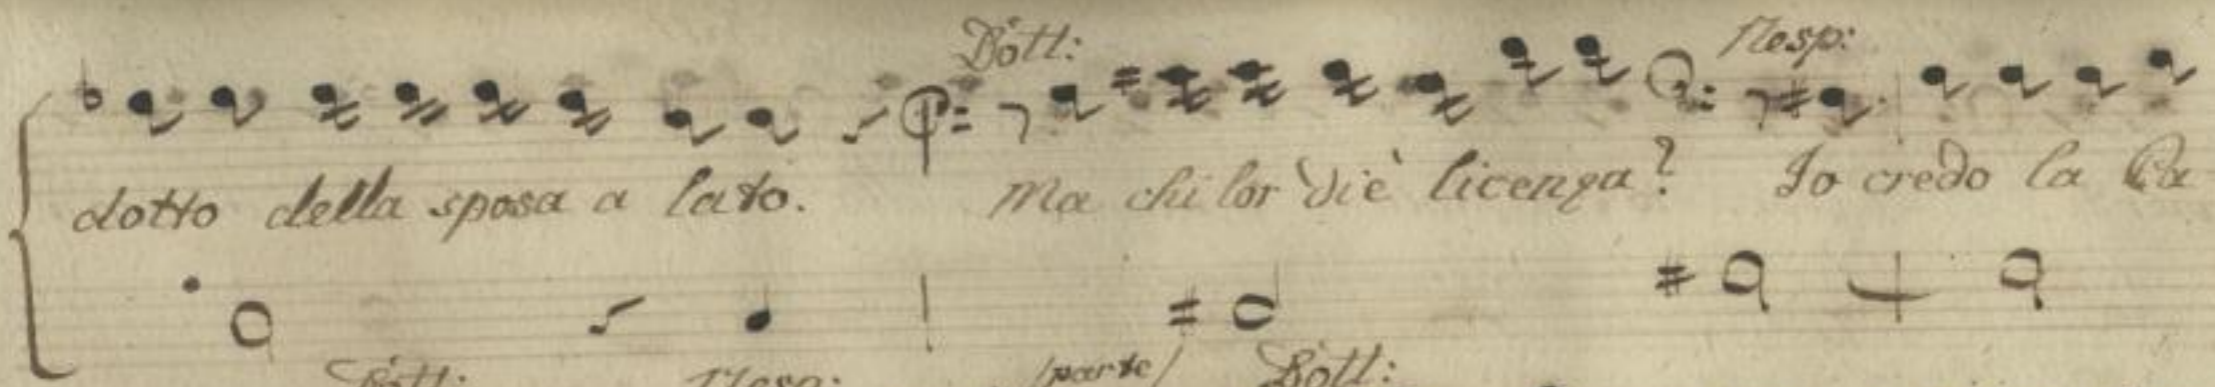 Dott: Nesp:
dotto della sposa a lato. Ma chi lor diè licenza? Io credo la Pa
Dott: Nesp: parte/ Dott: